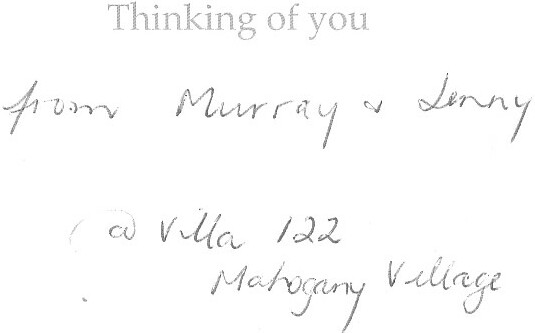 Thinking of you
from Murray & Jenny
@ Villa 122
Mahogany Village